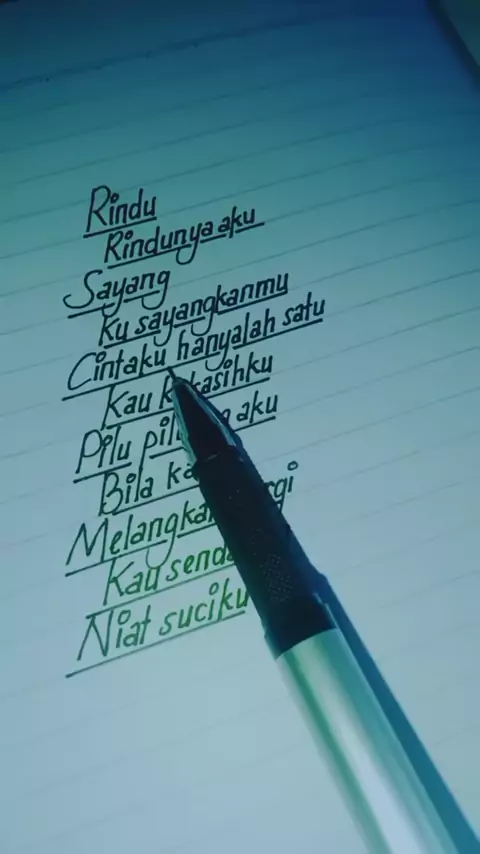 Rindu
Rindunya aku
Sayang
Ku sayangkanmu
Cintaku hanyalah satu
Kau kekasihku
Pilu aku
Bila
Melangkah
Kau
Niat suciku